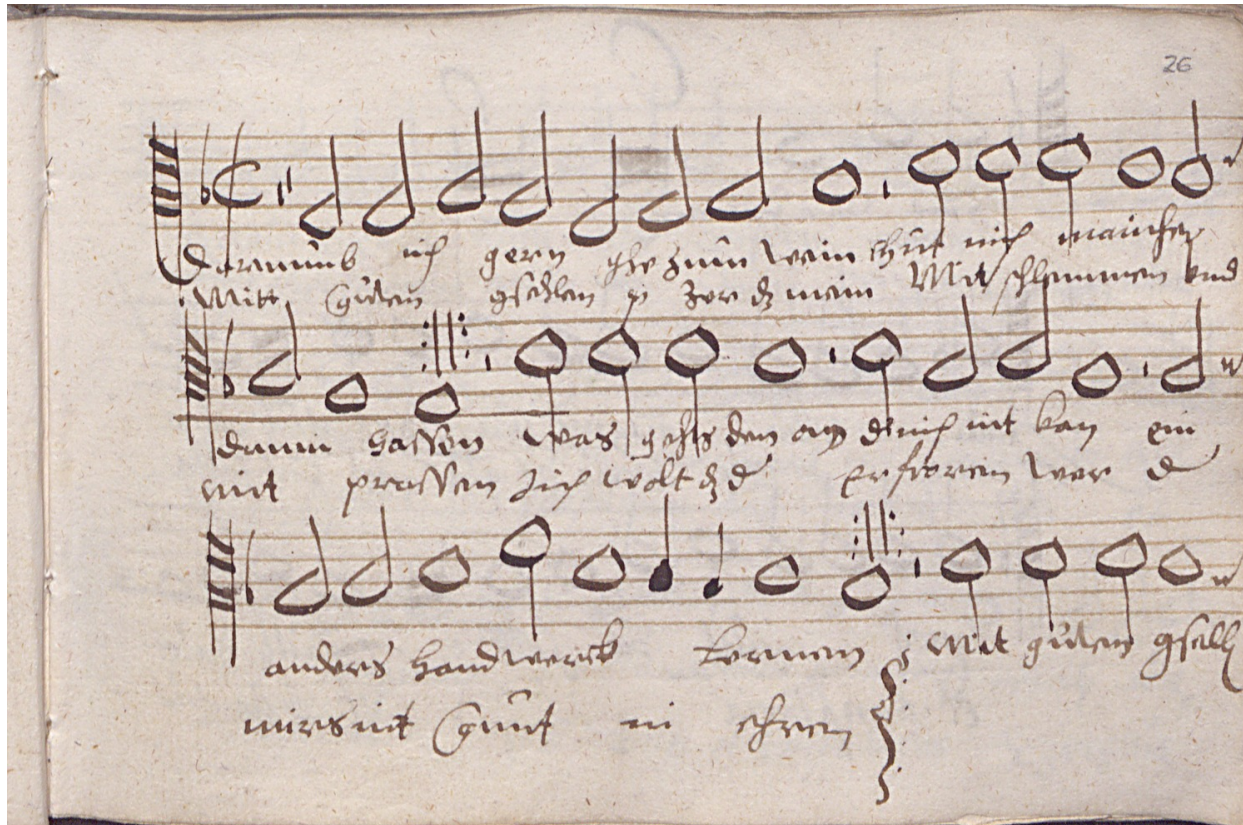 26
Darumb ich gern ghe zum wein thut mich mancher
Mitt guten gsellen zer dz mein Mit schlemmen und
drumb hassen Was gehts den an dz ich nit kan ein
mit prassen Ich wolt dz d erfroren wer d
anders handwerck lernen Mit guten gsell
mirs nit gunt in ehren